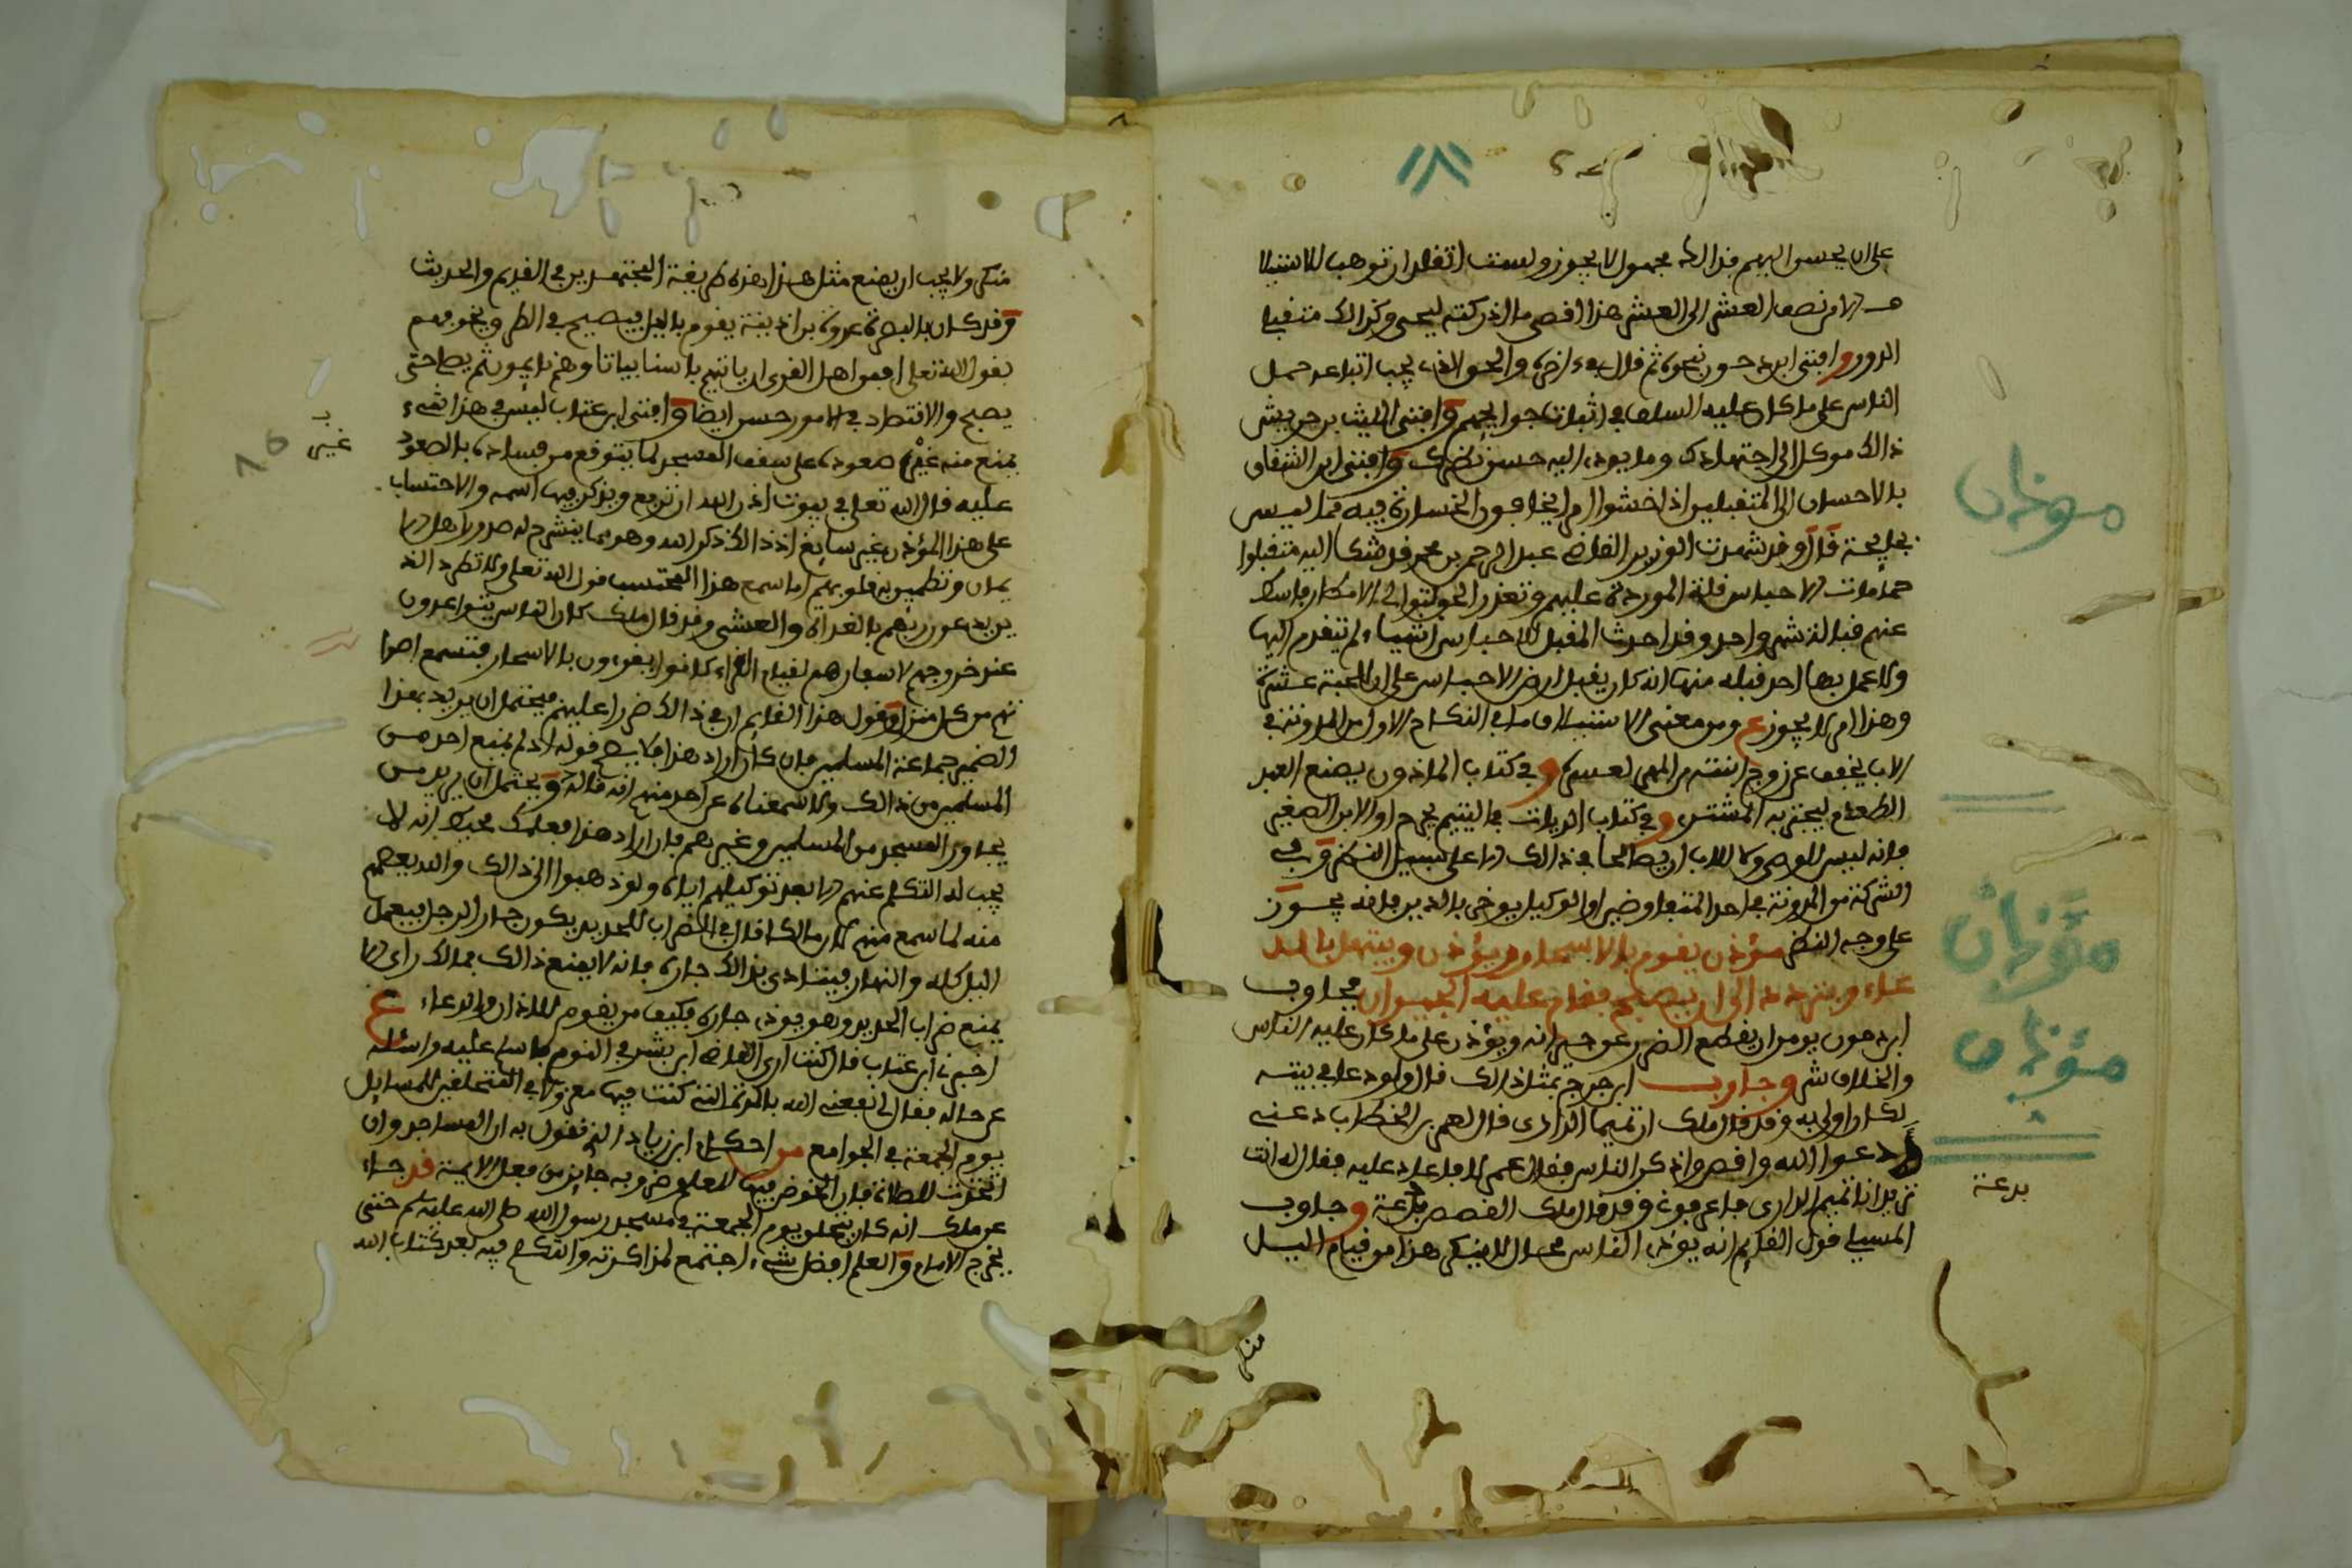 على ان يحسن اليهم فذالك مجهول لا يجوز ولست اتقلد ان توهب للاشبيلا
الا من نصف العشر الى العشر هذا اقصى ما الذي كنته ليحيى وكذالك متقبل
الدور وافتى ابن دحون نحوه ثم قال والحق الذي يجب اتباعه حمل
الناس على ما كان عليه السلف في اثبات حوايجهم وافتى الليث بن حريش
ذالك موكل الى اجتهادك وما يودي اليه حسن نظرك وافتى ابن الشقاق
بالاحسان الى المتقبلين اذا خشوا ام ايخافون الخسارة فيه مما ليس
بجايحة قال وقد شهدت الوزير القاضي عبد الرحمن بن محمد قد شكا اليه متقبلوا
حمامات الاحباس قلة الموردة عليهم وتعذر
عنهم قبالة شهر واحد وقد احدث المقبل للاحباس اشياء لم يتقدم اليها
ولا عمل بها احد قبله منها انه كان يقبل ارض الاحباس على ان للحبة عشرة
وهذا امر لا يجوز ع ومن معنى الاشبيلا ما في النكاح الاول من المدونة في
الاب يخفف عن زوج ابنته من المهر لعسره وفي كتاب الماذون يصنع العبد
الطعام ليجتر به المشتري وفي كتاب الديات في اليتيم يجرح او الابن الصغير
فانه ليس للوصي ولا للاب ان يصالحا في ذالك الا على سبيل النظر وفي
الشركة من المدونة في احد المتفاوضين او الوكيل يوخر بالدين فانه يجوز
على وجه النظر مؤذن يقوم بالاسحار ويؤذن ويبتهل بالد
عاء ويردده الى ان يصبح فقام عليه الجيران فجاوب
ابن دحون يومر ان يقطع الضرر عن جيرانه ويؤذن على ما كان عليه الناس
والخلاف شر وجاوب ابن جرج بمثل ذالك قال ولو دعا في بيته
لكان اولى به وقد قال ملك ان تميما الداري قال لعمر بن الخطاب دعني
ادعوا الله واقص واذكر الناس فقال عمر لا فاعاد عليه فقال له انت
تريد انا تميم الداري فاعرفوني وقد قال ملك القصص بدعة وجاوب
المسيلي قول القايم انه يؤذي الناس محال لا ينكر هذا من قيام الليل
منكر
موذنان
مؤذنان
مؤذنان
بدعة
منكر ولا يجب ان يصنع مثل هذا هذه طريقة المجتهدين في القديم والحديث
وقد كان بالبصرة عروة بن اذينة يقوم بالليل فيصيح في الطرق ويخوفهم
بقول الله تعلى افامن اهل القرى ان ياتيهم باسنا بياتا وهم نايمون ثم يصلي حتى
يصبح والاقتصاد في الامور حسن ايضا وافتى ابن عتاب ليس في هذا شيء
يمنع منه غير صعوده على سقف المسجد لما يتوقع من فساده بالصعود
عليه قال الله تعلى في بيوت اذن الله ان ترفع ويذكر فيها اسمه والاحتساب
على هذا المؤذن غير سايغ اذ ذالك ذكر الله وهو مما ينشرح له صدور اهل الا
يمان وتطمين به قلوبهم اما سمع هذا المحتسب قول الله تعلى ولا تطرد الذ
ين يدعون ربهم بالغداة والعشي وقد قال ملك كان الناس يتواعدون
عند خروجهم لاسفارهم لقيام القراء كانوا يقرءون بالاسحار فتسمع اصوا
تهم من كل منزل وقول هذا القايم ان في ذالك ضررا عليهم فيحتمل ان يريد بهذا
الضمير جماعة المسلمين فان كان اراد هذا فلا يصح قوله اذ لم يمنع احد من
المسلمين من ذالك ولا سمعناه عن احد منهم انه قاله ويحتمل ان يريد من
يجاور المسجد من المسلمين وغيرهم فان اراد هذا فعلمك محيط انه لا
يجب له التكلم عنهم الا بعد توكيلهم اياه ولو ذهبوا الى ذالك والله يعصمهم
منه لما سمع منهم لان مالكا قال في الضراب للحديد يكون جار الرجل فيعمل
الليل كله والنهار فيتاذى بذالك جاره فانه لا يمنع ذالك فمالك راى الا
يمنع ضراب الحديد وهو يوذي جاره فكيف من يقوم للاذان والدعاء ع
اخبرني ابن عتاب قال كنت ارى القاضي ابن بشر في النوم فاسلم عليه واسئله
عن حاله فقال لي نفعني الله بالمدة التي كنت فيها معزولا في التحليق للمسايل
يوم الجمعة في الجوامع من احكام ابن زياد الذي نقول به ان المساجد وان
اتخذت للصلاة فان الخوض فيها للعلم وضروبه جايز من فعل الايمة قد جاء
عن ملك انه كان يتحلق يوم الجمعة في مسجد رسول الله صلى الله عليه وسلم حتى
يخرج الامام والعلم افضل شيء اجتمع لمذاكرته والتكلم فيه بعد كتاب الله
غير